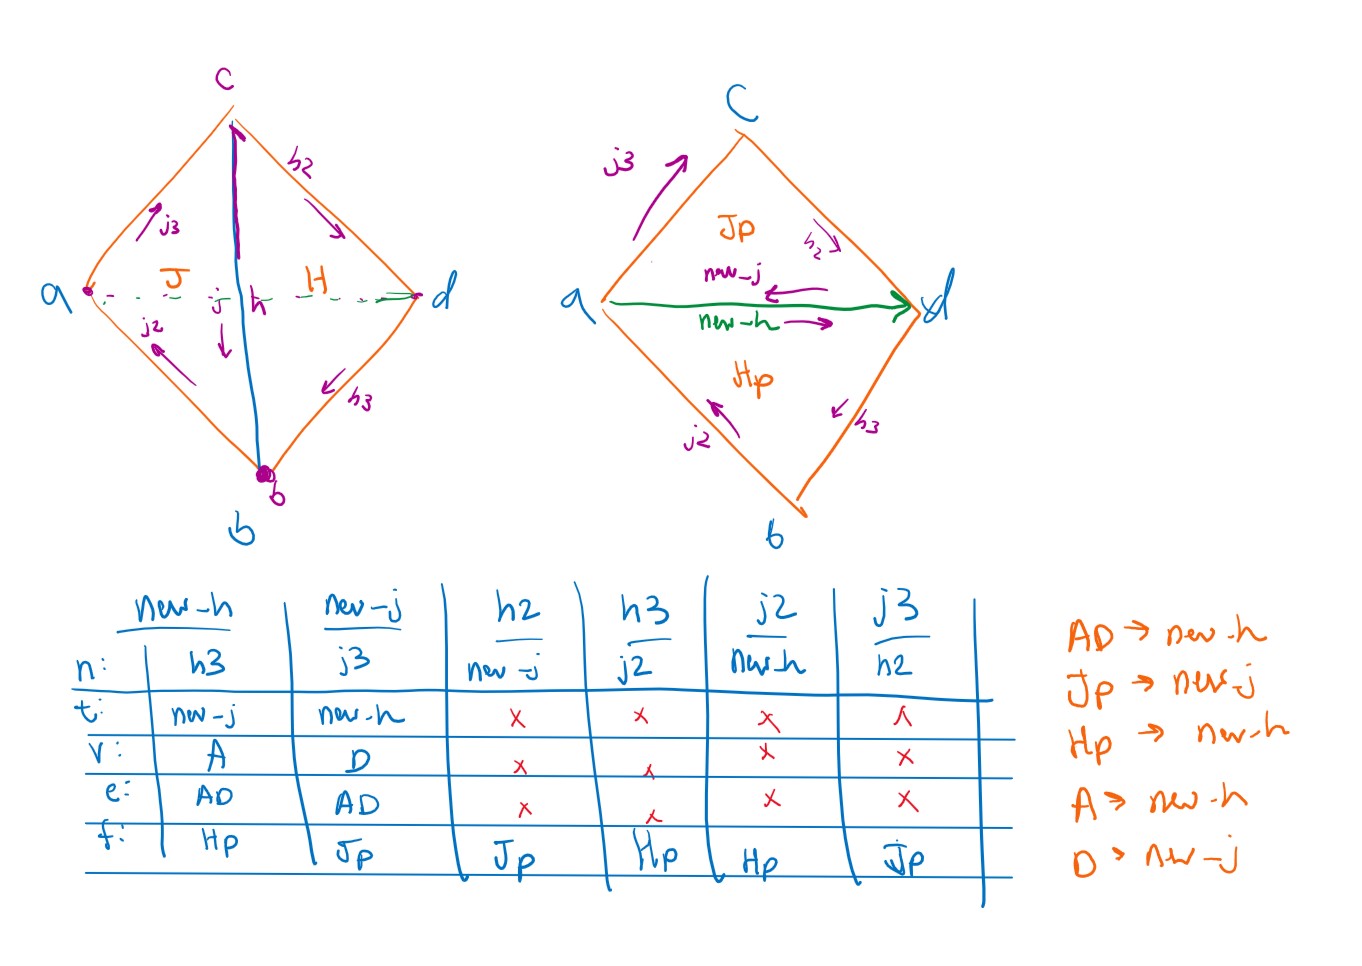 c
h2
j3
J
H
a
j
h
d
j2
h3
b
b
C
j3
Jp
h2
new-j
a
d
new-h
Hp
j2
h3
b
new-h new-j h2 h3 j2 j3
n: h3 j3 new-j j2 new-h h2
t: new-j new-h x x x x
v: A D x x x x
e: AD AD x x x x
f: Hp Jp Jp Hp Hp Jp
AD → new-h
Jp → new-j
Hp → new-h
A → new-h
D → new-j